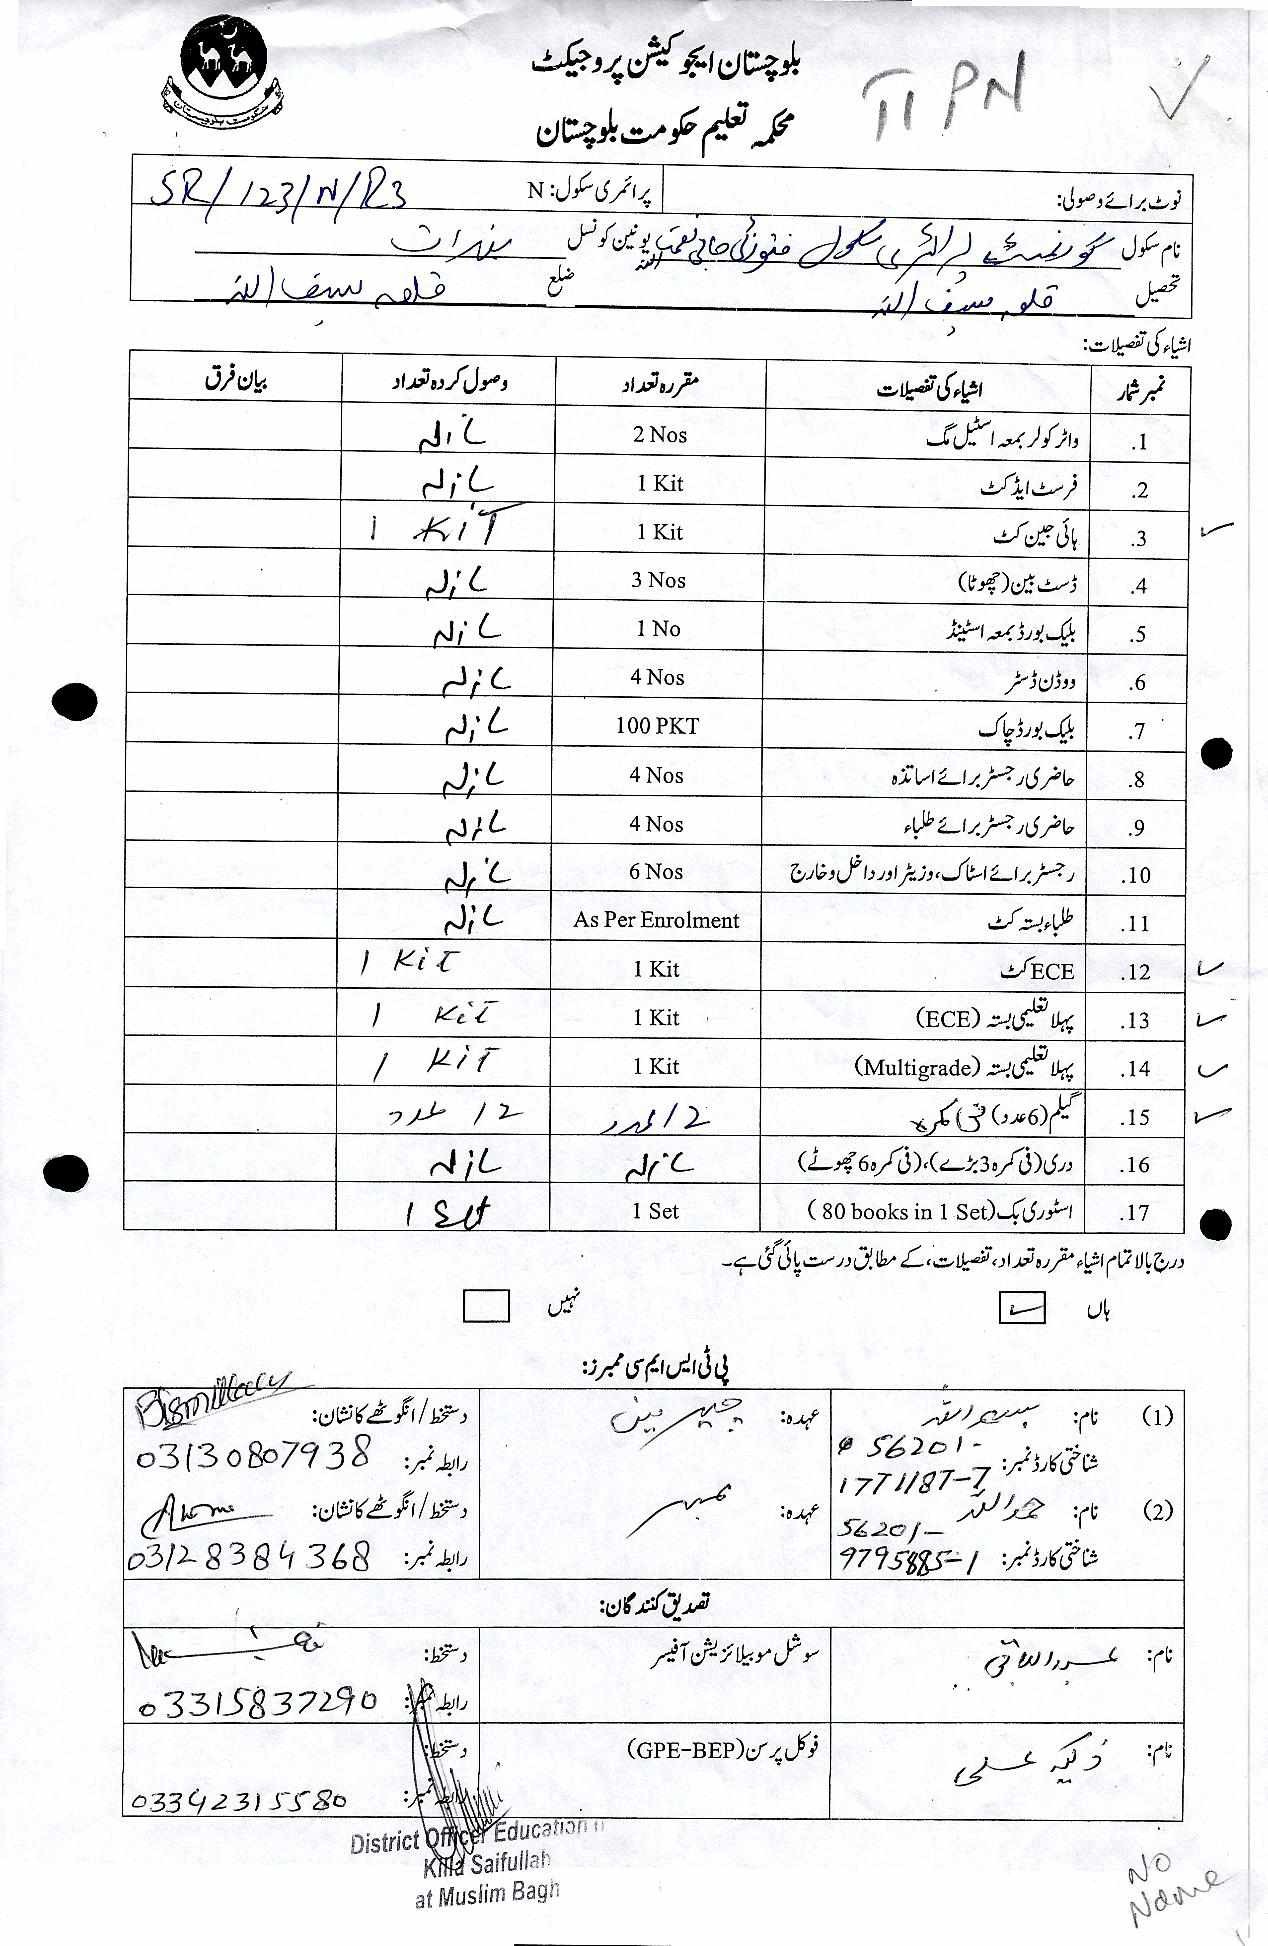 بلوچستان ایجوکیشن پروجیکٹ
TI PN
محکمہ تعلیم حکومت بلوچستان
نوٹ برائے وصولی: پرائمری سکول: N SR/123/N/R3
نام سکول گورنمنٹ پرائمری سکول حاجی نعمت اللہ یونین کونسل
تحصیل قلعہ سیف اللہ ضلع قلعہ سیف اللہ
اشیاء کی تفصیلات:
نمبر شمار اشیاء کی تفصیلات مقررہ تعداد وصول کردہ تعداد بیان فرق
1. واٹر کولر بمعہ اسٹیل مگ 2 Nos Nil
2. فرسٹ ایڈ کٹ 1 Kit Nil
3. ہائی جین کٹ 1 Kit 1 KiT
4. ڈسٹ بین (چھوٹا) 3 Nos Nil
5. بلیک بورڈ بمعہ اسٹینڈ 1 No Nil
6. ووڈن ڈسٹر 4 Nos Nil
7. بلیک بورڈ چاک 100 PKT Nil
8. حاضری رجسٹر برائے اساتذہ 4 Nos Nil
9. حاضری رجسٹر برائے طلباء 4 Nos Nil
10. رجسٹر برائے اسٹاک، وزیٹر اور داخل و خارج 6 Nos Nil
11. طلباء بستہ کٹ As Per Enrolment Nil
12. ECE کٹ 1 Kit 1 KiT
13. پہلا تعلیمی بستہ (ECE) 1 Kit 1 KiT
14. پہلا تعلیمی بستہ (Multigrade) 1 Kit 1 KiT
15. گیلم (6 عدد) فی کمرہ 12 عدد 12 عدد
16. دری (فی کمرہ 3 بڑے)، (فی کمرہ 6 چھوٹے) Nil Nil
17. اسٹوری بک (80 books in 1 Set) 1 Set 1 Set
درج بالا تمام اشیاء مقررہ تعداد، تفصیلات، کے مطابق درست پائی گئی ہے۔
ہاں نہیں
پی ٹی ایس ایم سی ممبرز:
(1) نام: بسم اللہ عہدہ: چیئرمین دستخط/انگوٹھے کا نشان: Bismillah
شناختی کارڈ نمبر: 56201-1771187-7 رابطہ نمبر: 03130807938
(2) نام: حمد اللہ عہدہ: ممبر دستخط/انگوٹھے کا نشان:
شناختی کارڈ نمبر: 56201-9795885-1 رابطہ نمبر: 03128384368
تصدیق کنندگان:
نام: عبدالباقی سوشل موبیلائزیشن آفیسر دستخط:
رابطہ نمبر: 03315837290
نام: علی فوکل پرسن (GPE-BEP) دستخط:
رابطہ نمبر: 03342315580
District Officer Education
Killa Saifullah
at Muslim Bagh
No
Name